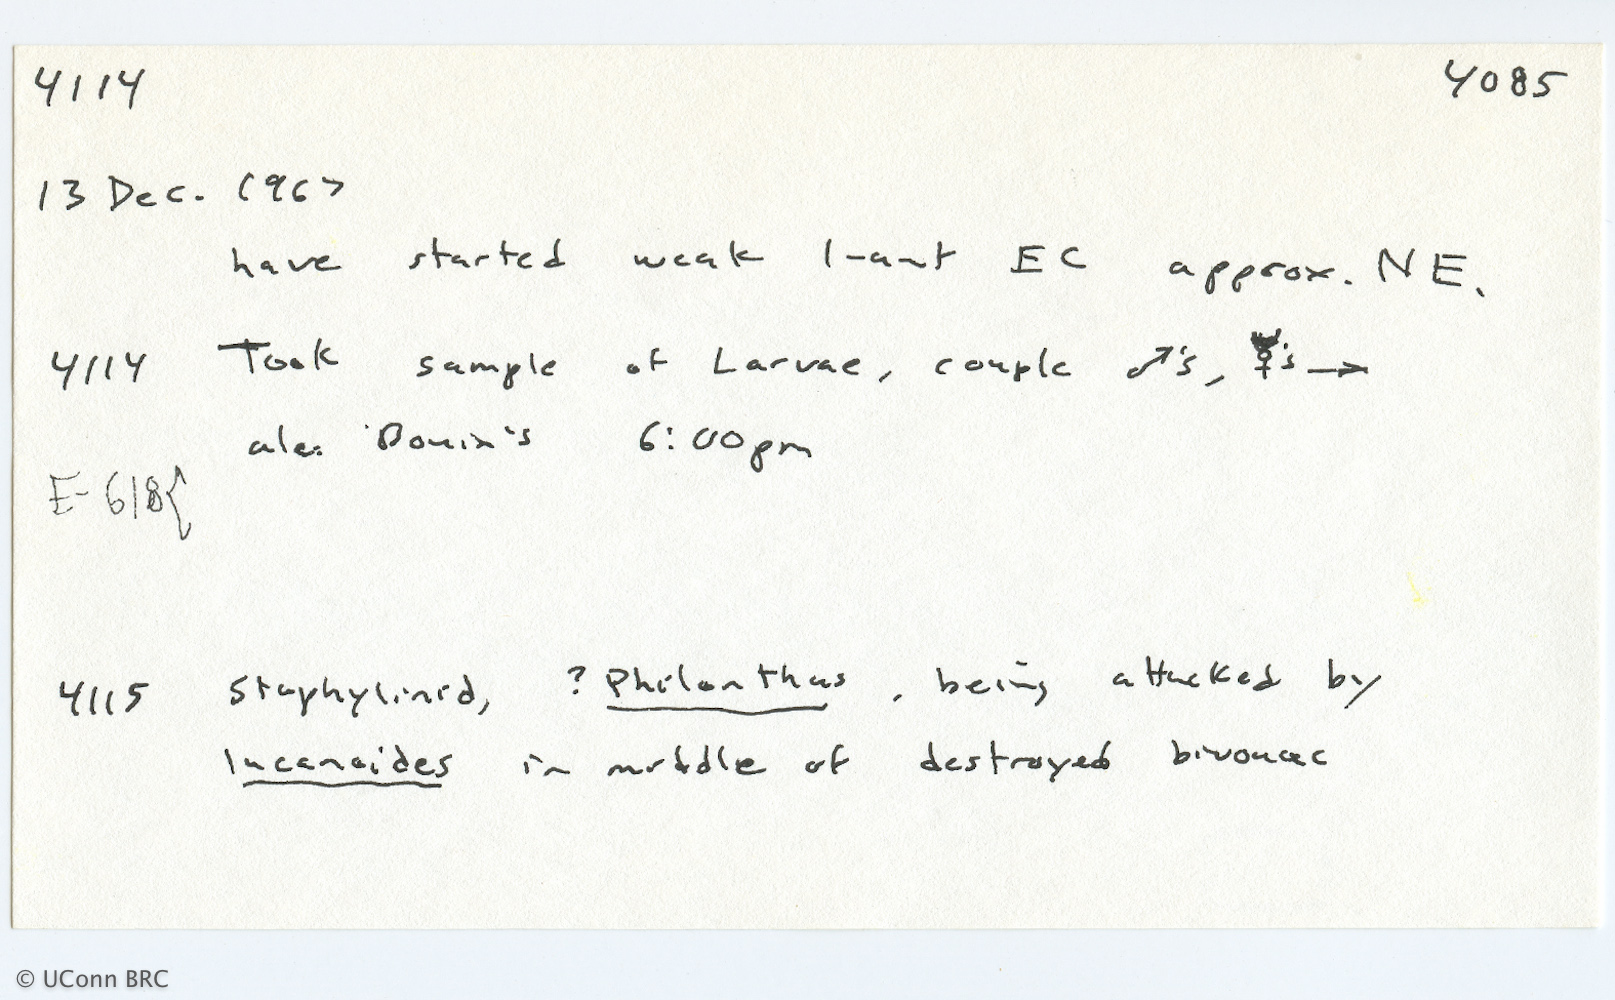 4114 4085
13 Dec. 1967
have started weak 1-ant EC approx. NE.
4114 Took sample of Larvae, couple ♂'s, ☿'s →
alc. Bouin's 6:00pm
E-618{
4115 Staphylinid, ? Philonthus, being attacked by
lucanoides in middle of destroyed bivouac
© UConn BRC